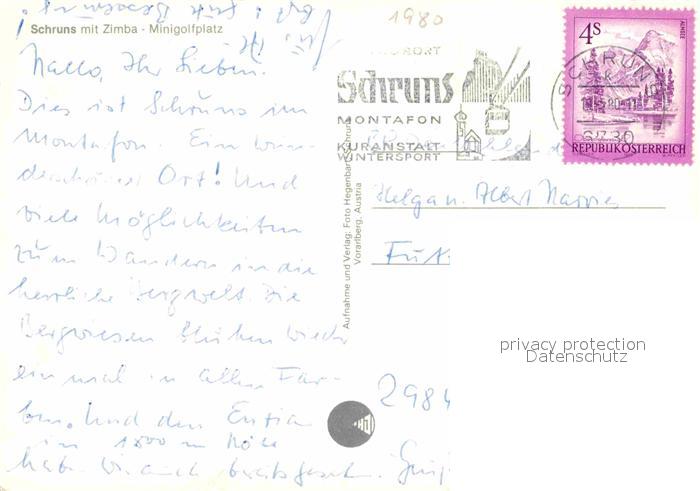 Schruns mit Zimba - Minigolfplatz
Hallo, Ihr Lieben.
Dies ist Schruns im
Montafon. Ein wun-
derschöner Ort! Und
viele Möglichkeiten
zum Wandern in die
herrliche Bergwelt. Die
Bergwiesen blühen wieder
einmal in allen Far-
ben. Und den Enzian
in 1800 m Höhe
haben wir auch bereits gesehen.
Aufnahme und Verlag: Foto Hegenbart, Schruns
Vorarlberg, Austria
1980
Schruns
MONTAFON
KURANSTALT
WINTERSPORT
4S
ALMSEE
REPUBLIK ÖSTERREICH
SCHRUNS
6780
Helga u. Albert
2984
privacy protection
Datenschutz